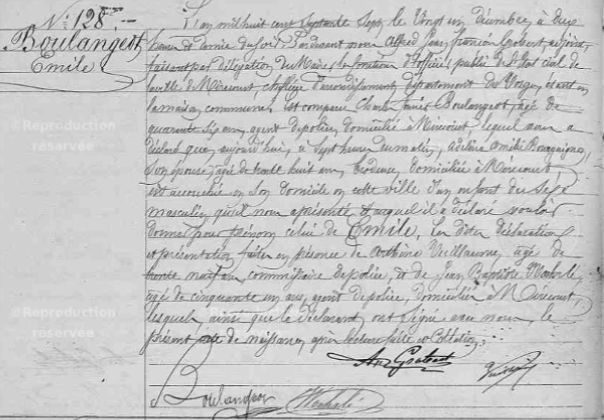 N° 128
Boulangeot
Emile
L'an mil huit cent septante sept, le vingt un Décembre, à deux
heures et demie du soir Pardevant nous Alfred Jean François Gobert, adjoint,
faisant par délégation du Maire, les fonctions d'officier public de l'Etat civil de
la ville de Mirecourt, chef lieu d'arrondissement, département des Vosges, étant en
la maison commune, est comparu Charles Louis Boulangeot, âgé de
quarante six ans, agent de police, domicilié à Mirecourt, lequel nous a
déclaré que, aujourd'hui, à sept heures du matin,
son épouse, âgée de trente huit ans, domiciliée à Mirecourt,
est accouchée en son domicile en cette ville d'un enfant du sexe
masculin, qu'il nous a présenté et auquel il a déclaré vouloir
donner pour prénom celui de Emile. Les dites déclaration
et présentation faites en présence de Vuillaume, âgé de
trente neuf ans, commissaire de police, et de Jean Baptiste
âgé de cinquante un ans, agent de police, domiciliés à Mirecourt,
lesquels, ainsi que le déclarant, ont signé avec nous le
présent acte de naissance, après lecture faite et Collation.
Boulangeot
©Reproduction
réservée
©Reproduction
réservée
©Reproduction
réservée
©Reproduction
réservée